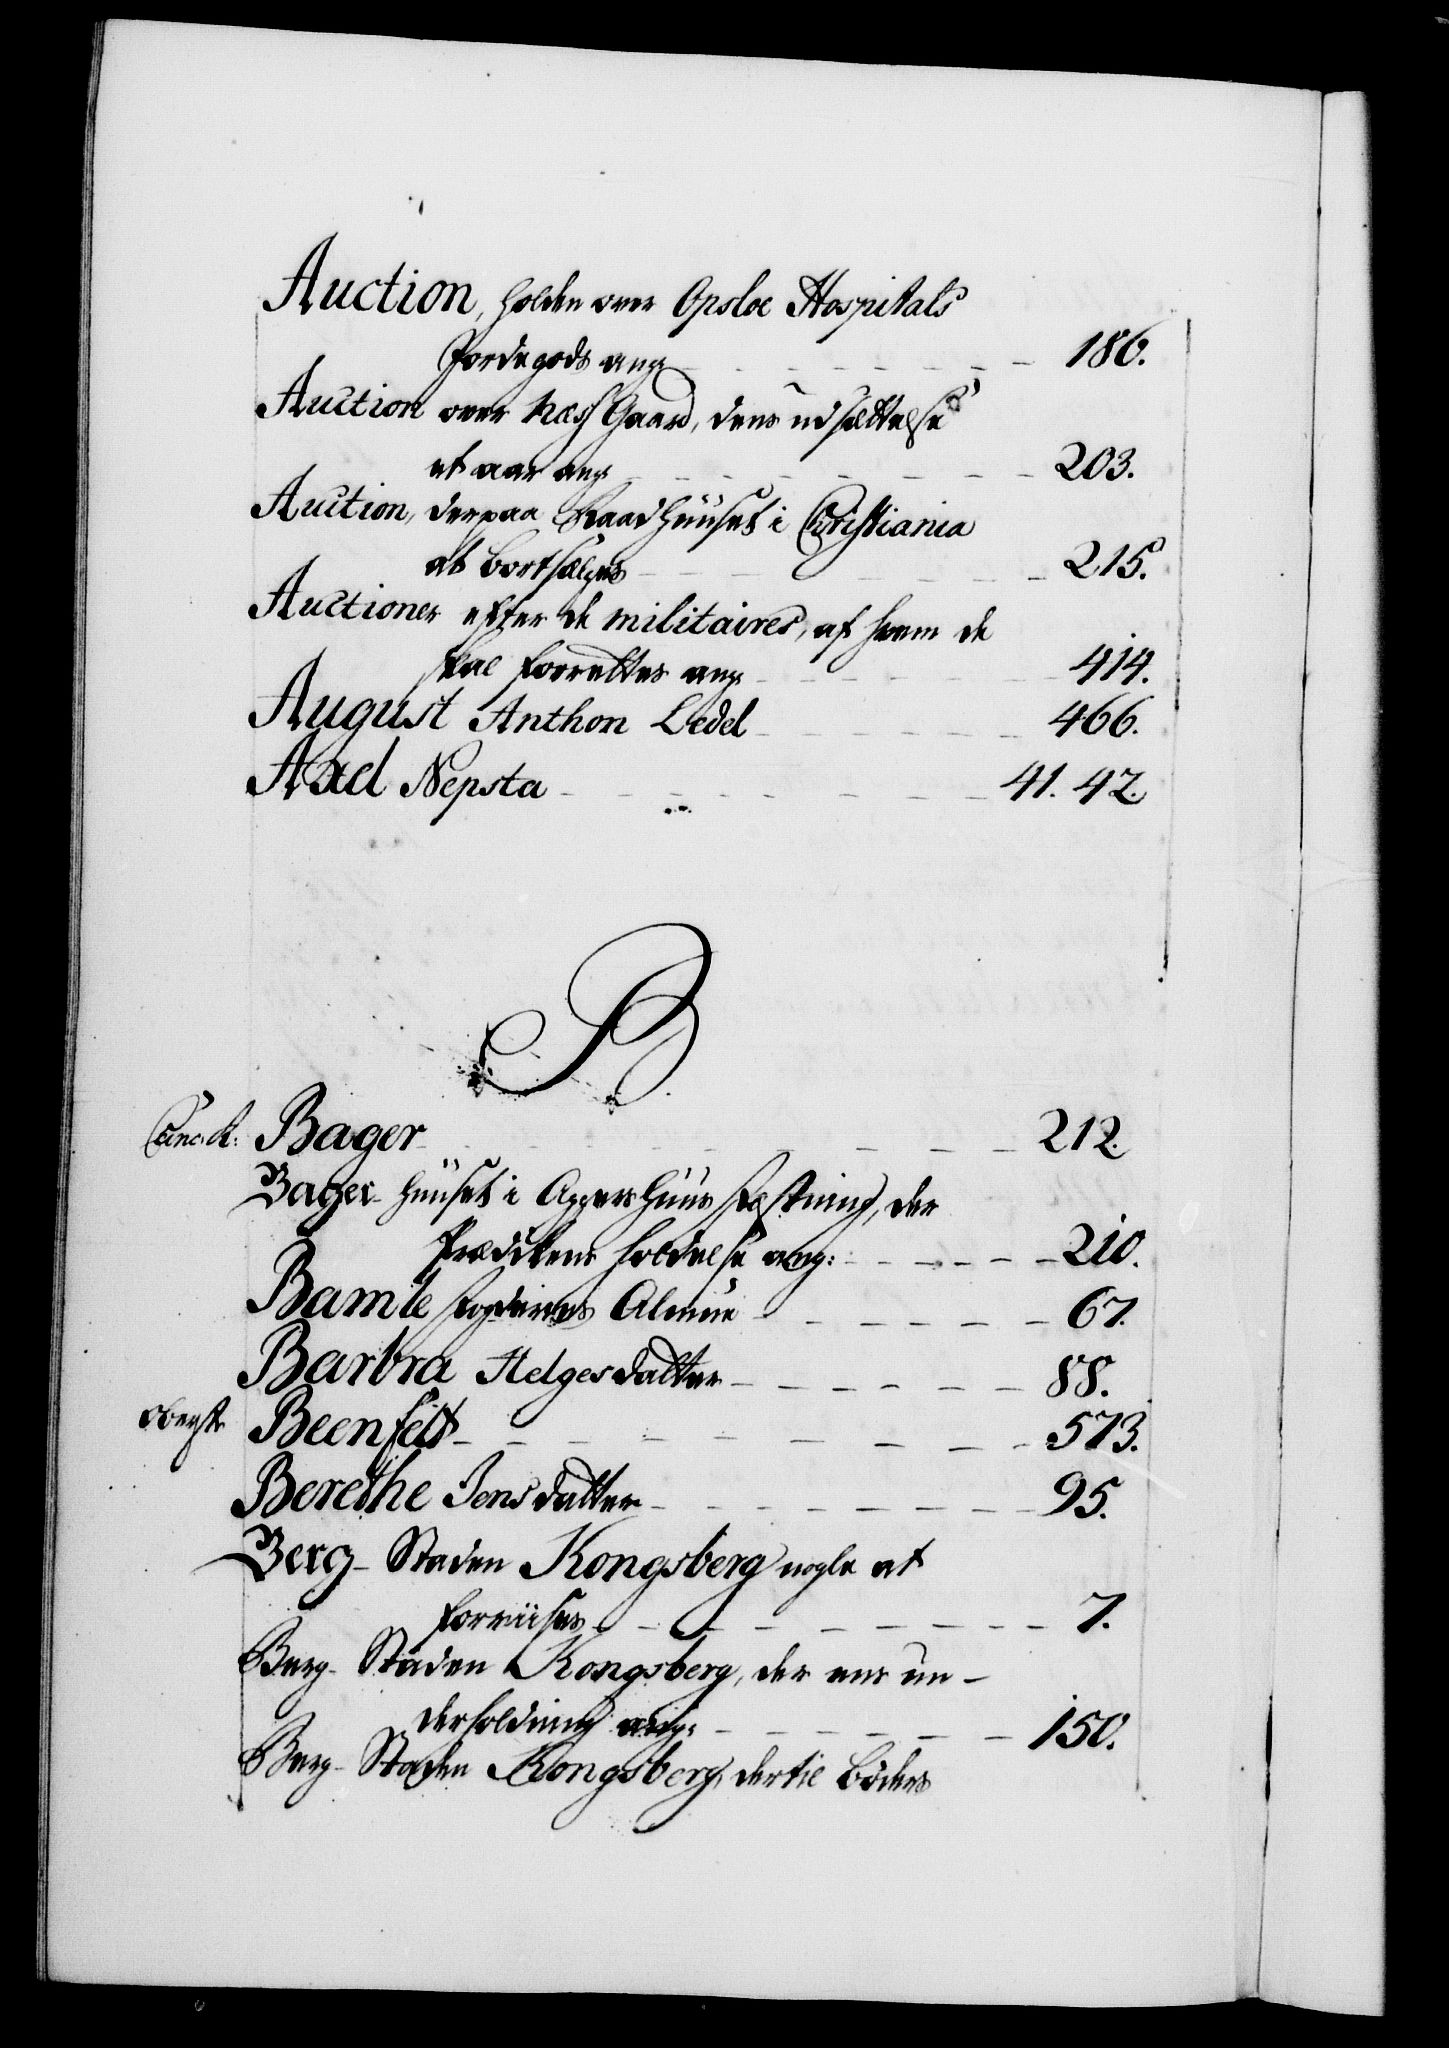 Auction, holden over Opsloe Hospitals
Jordegods ang: 186.
Auction over Næss Gaard, dens udsættelse
et aar ang 203.
Auction, derpaa Raadhuuset i Christiania
at bortsælges 215.
Auctioner efter de militaires, af hvem de
skal forrettes ang: 414.
August Anthon Ledel 466.
Axel Nepsta 41. 42.
B
Canc. R: Bager 212.
Bager-huuset i Aggershuus Fæstning, der
Prædikens holdelse ang: 210.
Bamle Fogderies Almue 67.
Barbra Helgesdatter 88.
Oberste Beenfelt 573.
Berethe Jensdatter 95.
Berg-Staden Kongsberg nogle at
forviises 7.
Berg-Staden Kongsberg, der ens un-
derholdning ang: 150.
Berg-Staden Kongsberg, dertil bøders